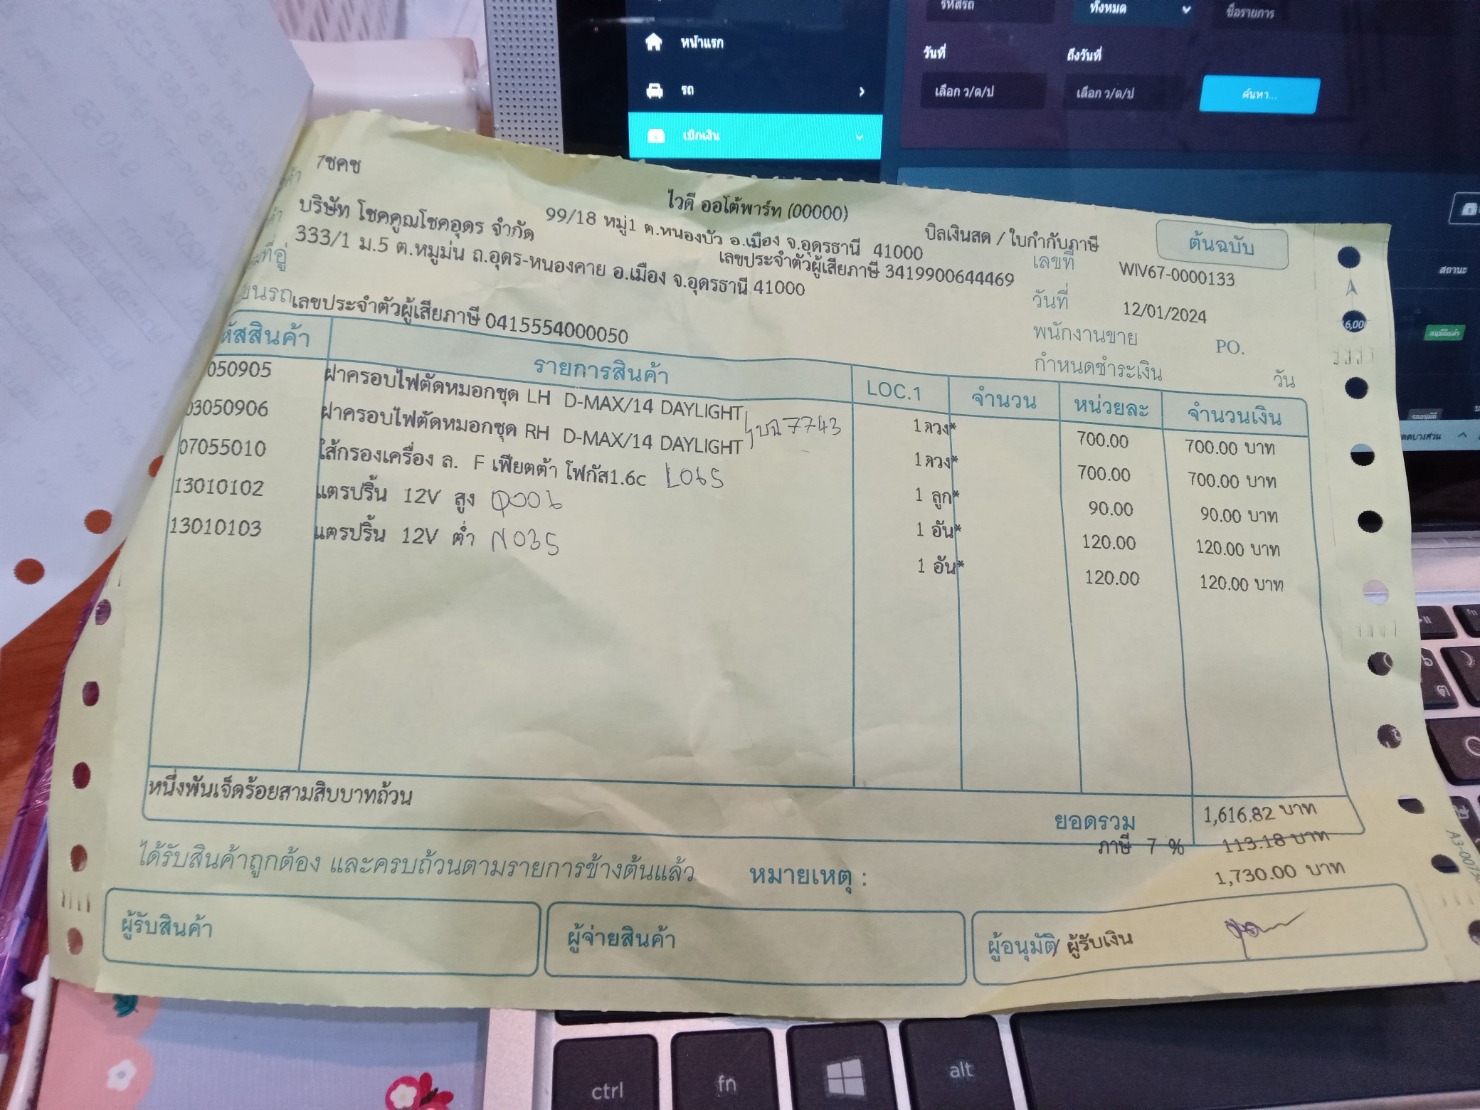 รหัสรถ
ทั้งหมด
ชื่อรายการ
หน้าแรก
วันที่
ถึงวันที่
รถ
เลือก ว/ด/ป
เลือก ว/ด/ป
ค้นหา...
เบิกเงิน
สถานะ
7ชคช
ไวดี ออโต้พาร์ท (00000)
บริษัท โชคคูณโชคอุดร จำกัด
99/18 หมู่1 ต.หนองบัว อ.เมือง จ.อุดรธานี 41000
บิลเงินสด / ใบกำกับภาษี
ต้นฉบับ
333/1 ม.5 ต.หมูม่น ถ.อุดร-หนองคาย อ.เมือง จ.อุดรธานี 41000
เลขประจำตัวผู้เสียภาษี 3419900644469
เลขที่ WIV67-0000133
วันที่ 12/01/2024
เลขประจำตัวผู้เสียภาษี 0415554000050
พนักงานขาย PO.
กำหนดชำระเงิน วัน
หัสสินค้า รายการสินค้า LOC.1 จำนวน หน่วยละ จำนวนเงิน
050905 ฝาครอบไฟตัดหมอกชุด LH D-MAX/14 DAYLIGHT 1 ดวง* 700.00 700.00 บาท
03050906 ฝาครอบไฟตัดหมอกชุด RH D-MAX/14 DAYLIGHT 7743 1 ดวง* 700.00 700.00 บาท
07055010 ไส้กรองเครื่อง ล. F เฟียตต้า โฟกัส1.6c L065 1 ลูก* 90.00 90.00 บาท
13010102 แตรปริ้น 12V สูง 1 อัน* 120.00 120.00 บาท
13010103 แตรปริ้น 12V ต่ำ N035 1 อัน* 120.00 120.00 บาท
หนึ่งพันเจ็ดร้อยสามสิบบาทถ้วน
ยอดรวม 1,616.82 บาท
ภาษี 7 % 113.18 บาท
ได้รับสินค้าถูกต้อง และครบถ้วนตามรายการข้างต้นแล้ว หมายเหตุ : 1,730.00 บาท
ผู้รับสินค้า ผู้จ่ายสินค้า ผู้อนุมัติ/ ผู้รับเงิน
ctrl fn alt